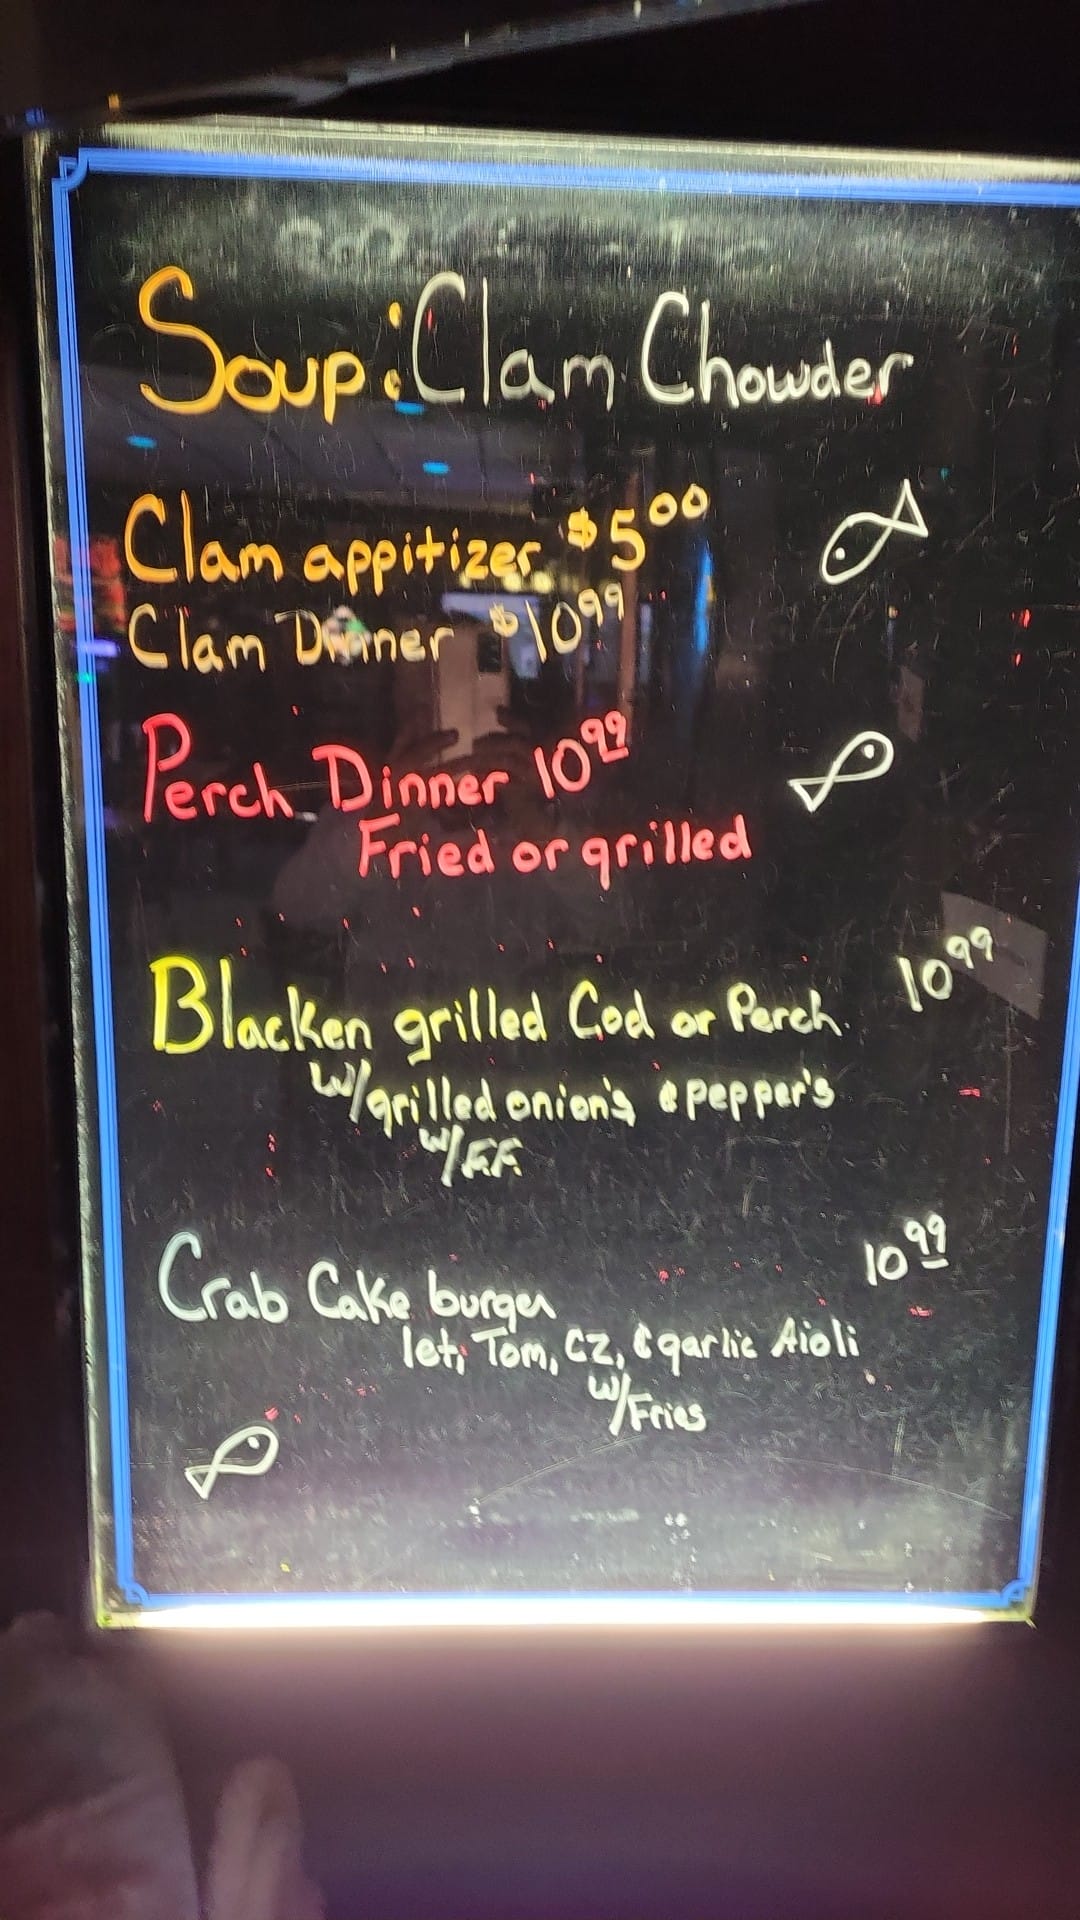 Soup: Clam Chowder
Clam appitizer $5.00
Clam Dinner $10.99
Perch Dinner 10.99
Fried or grilled
Blacken grilled Cod or Perch. 10.99
w/grilled onion's & pepper's
w/F.F.
Crab Cake burger 10.99
let, Tom, CZ, & garlic Aioli
w/Fries